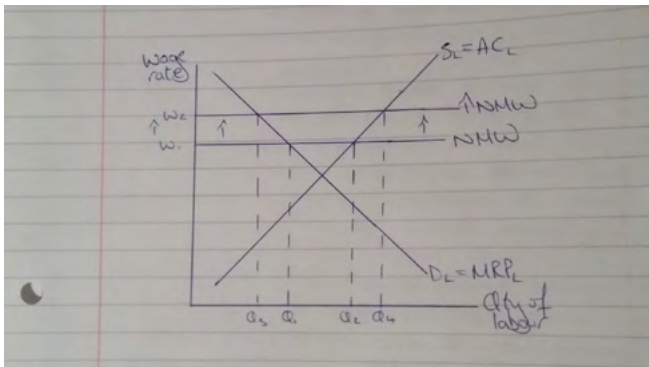 Wage
rate
SL = ACL
↑NMW
W2
↑
↑
↑
NMW
W1
DL = MRPL
Q3
Q1
Q2
Q4
Qty of
labour